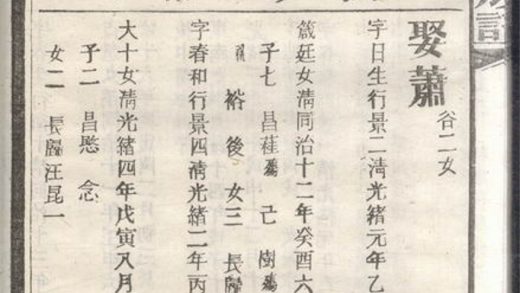 娶蕭
谷二女
字日生行景二清光緒元年乙
箴廷女清同治十二年癸酉六
子七 昌
己 樹
裕 後 女三 長
字春和行景四清光緒二年丙
大十女清光緒四年戊寅八月
子二 昌 念
女二 長歸汪昆一